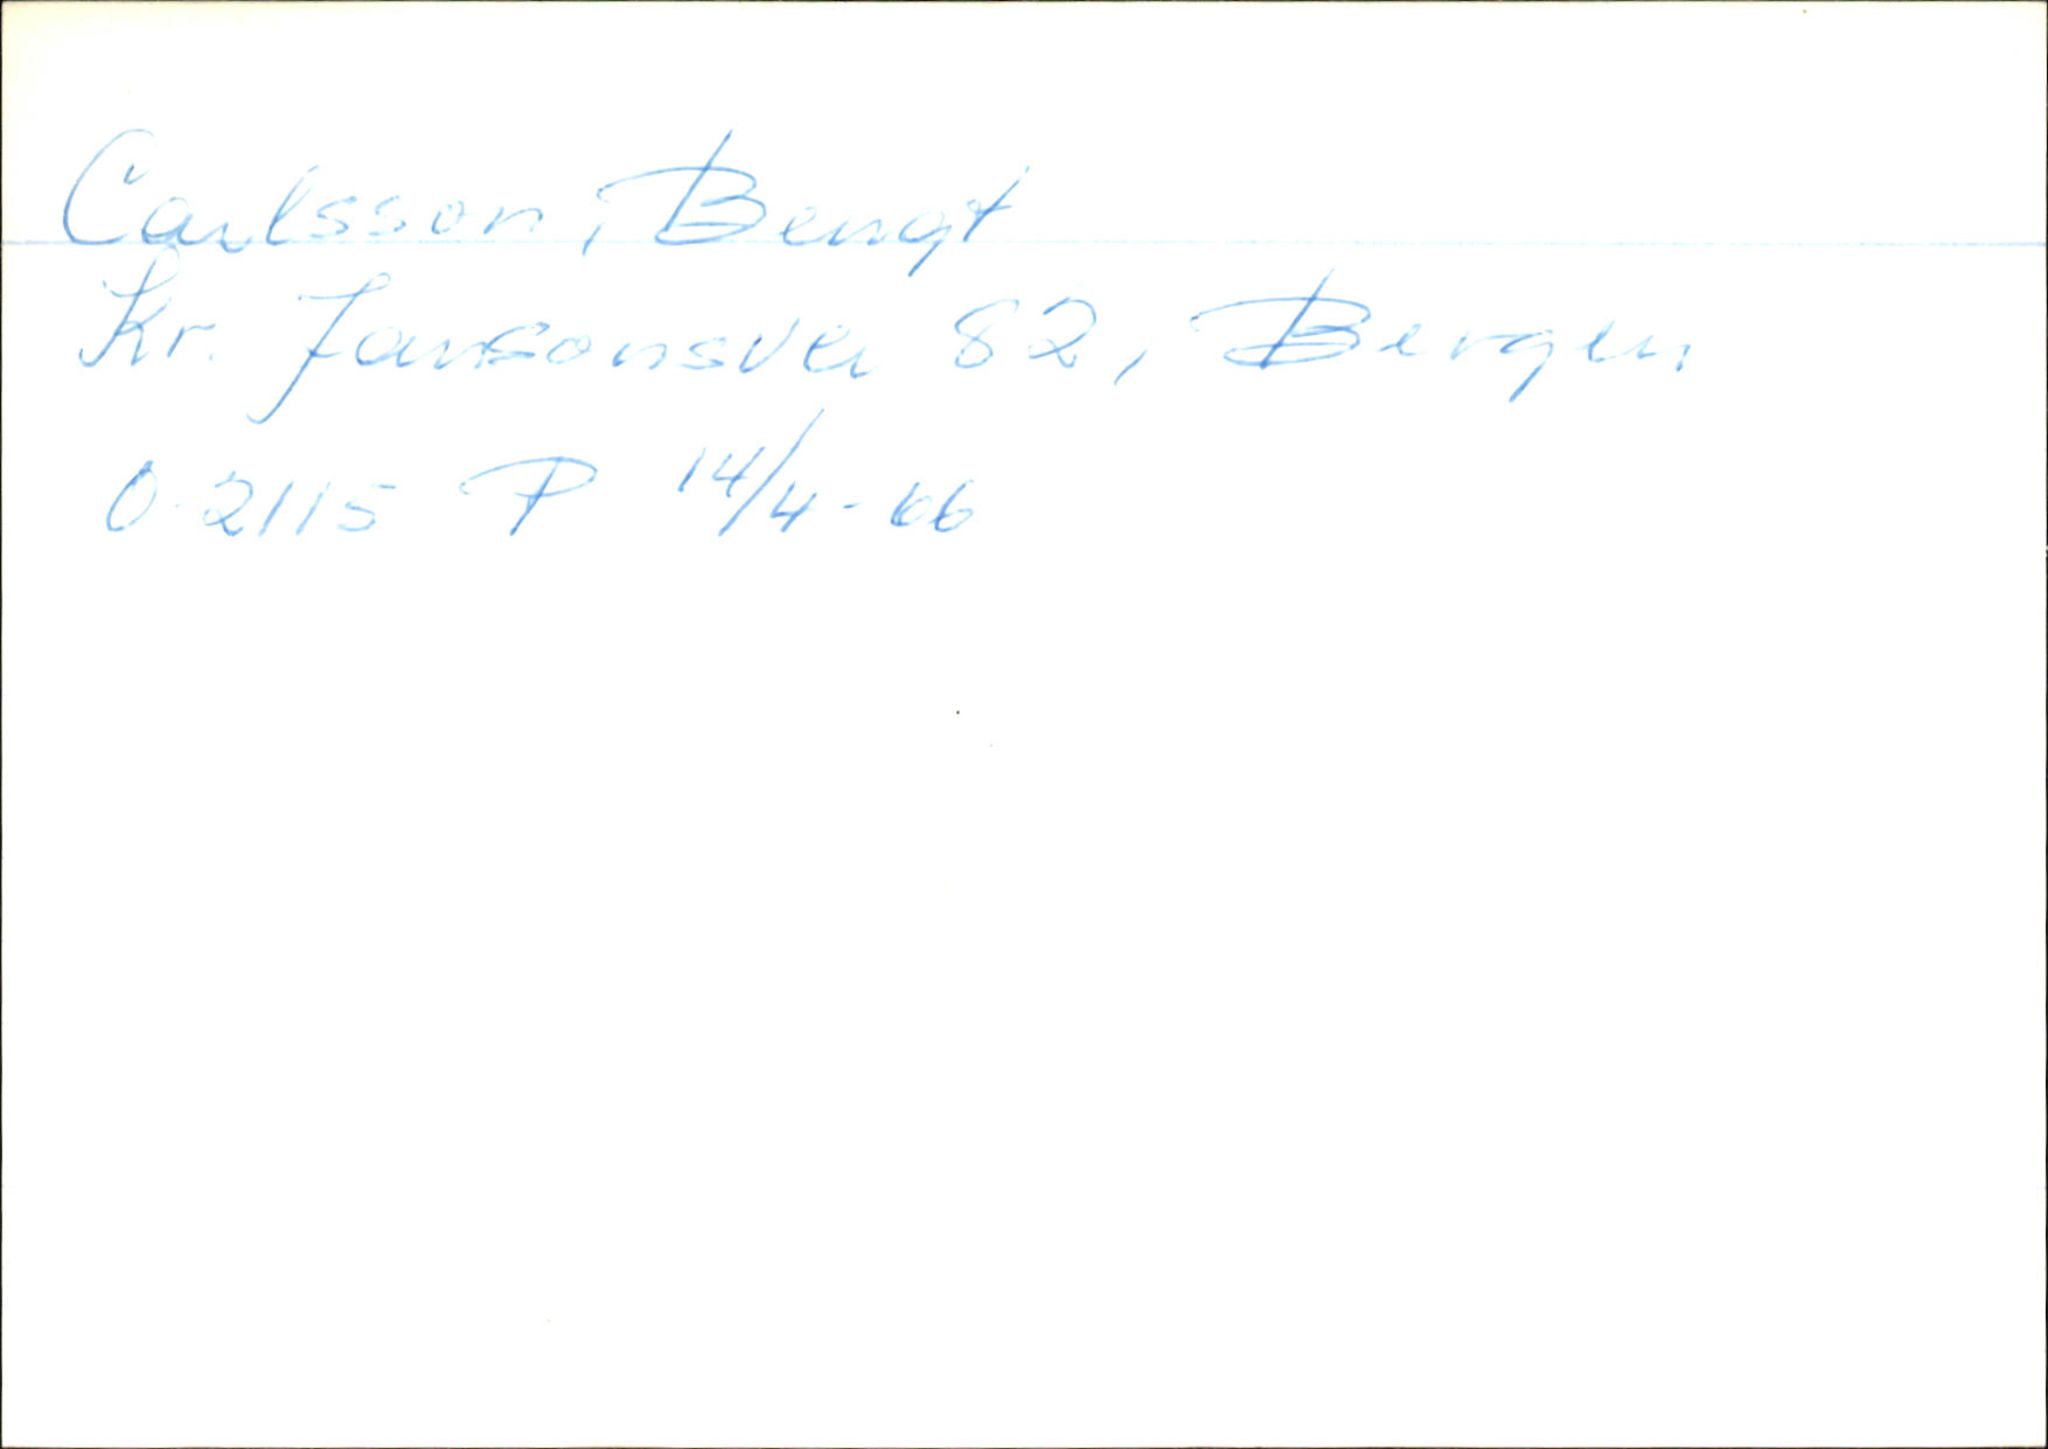 Carlsson, Bengt
Kr. Jansonsvei 82, Bergen
O-2115 P 14/4-66